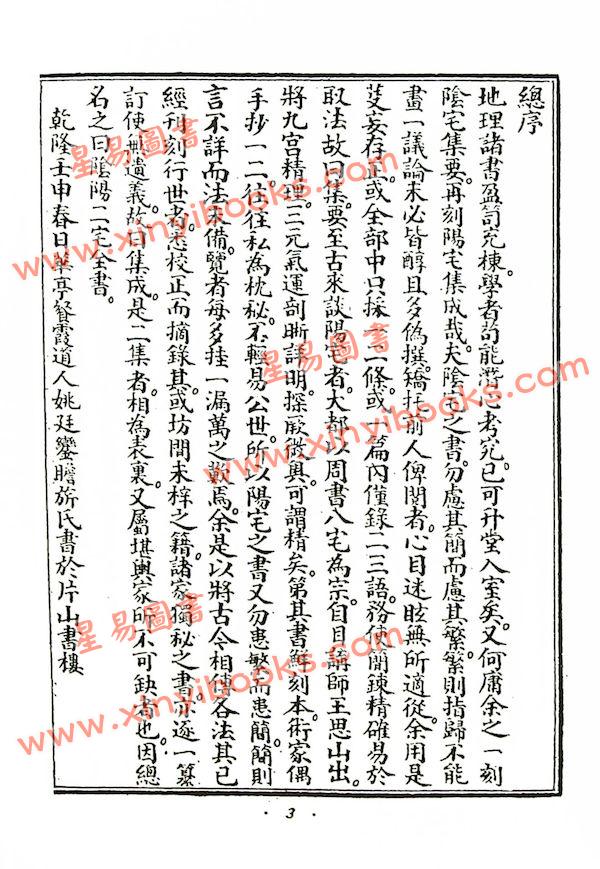 總序
地理諸書盈笥充棟。學者苟能潛心考究。已可升堂入室矣。又何庸余之一刻
陰宅集要。再刻陽宅集成哉。夫陰宅之書。勿慮其簡而慮其繁。繁則指歸不能
畫一。議論未必皆醇。且多偽撰。矯托前人。俾閱者心目迷眩。無所適從。余用是
芟妄存正。或全部中只採一二條。或一篇內僅錄二三語。務使簡鍊精確。易於
取法。故曰集要。至古來談陽宅者。大都以周書八宅為宗。自目講師王思山出。
將九宮精理。三元氣運。剖晰詳明。探厥微奧。可謂精矣。第其書鮮刻本。術家偶
手抄一二。往往私為枕秘。不輕易公世。所以陽宅之書。又勿患繁而患簡。簡則
言不詳而法未備。覽者每多挂一漏萬之歎焉。余是以將古今相傳各法。其已
經刊刻行世者。悉校正而摘錄其。或坊間未梓之籍。諸家獨秘之書。亦逐一纂
訂。使無遺義。故曰集成。是二集者。相為表裏。又屬堪輿家所不可缺者也。因總
名之曰陰陽二宅全書。
乾隆壬申春日華亭餐霞道人姚廷鑾瞻旂氏書於片山書樓
· 3 ·
星易圖書
www.xinyibooks.com
星易圖書
www.xinyibooks.com
星易圖書
www.xinyibooks.com